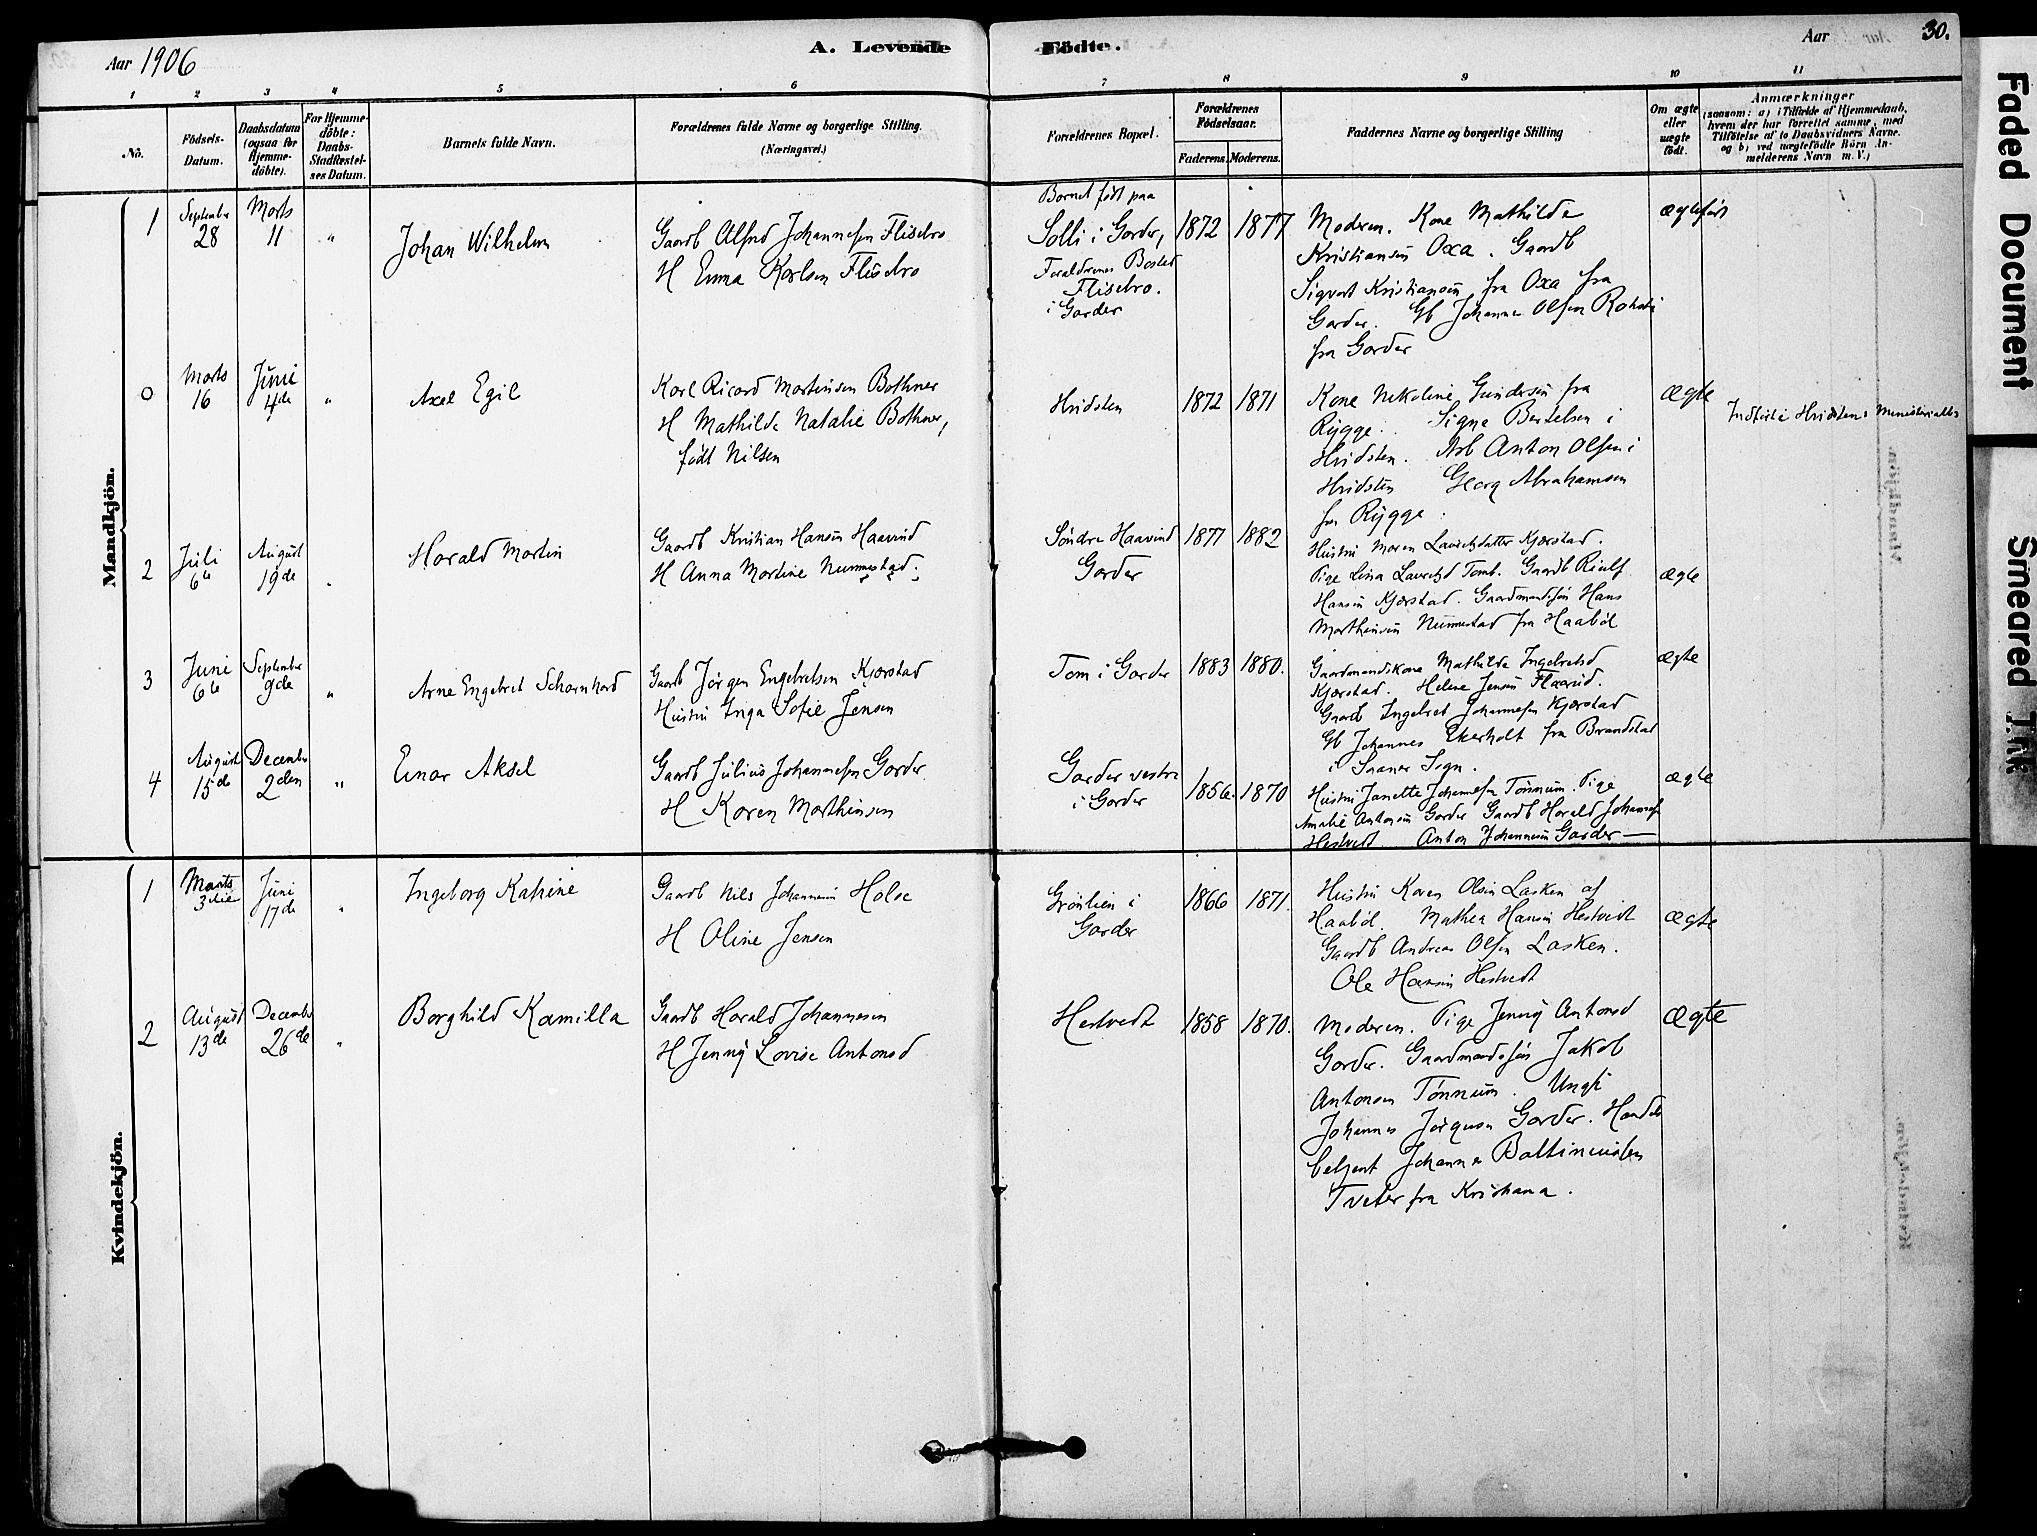 Aar 1906
A. Levende
Födte.
Aar
30.
1 2 3 4 5 6 7 8 9 10 11
No.
Födsels-
Datum.
Daabsdatum
(ogsaa for
Hjemme-
døbte).
For Hjemme-
døbte:
Daabs-
Stadfæstel-
ses Datum.
Barnets fulde Navn.
Forældrenes fulde Navne og borgerlige Stilling.
(Næringsvei.)
Forældrenes Bopæl.
Forældrenes
Födselsaar.
Faderens. Moderens.
Faddernes Navne og borgerlige Stilling
Om ægte
eller
uægte
født.
Anmærkninger
(saasom: a) i Tilfælde af Hjemmedaab,
hvem der har forrettet samme, med
Tilføielse af to Daabsvidners Navne.
og b) ved uægtefødte Börn An-
melderens Navn m. V.)
Mandkjön.
1
September
28
Marts
11
"
Johan Wilhelm
Gaardb Alfred Johannesen Flisebro
H Emma Karlsen Flisebro
Barnet født paa
Solli i Garder,
Forældrenes Bosted
Flisebro.
i Garder
1872
1877
Moderen. Kone Mathilde
Kristiansen Oxa. Gaardb
Sigvart Kristiansen fra Oxa fra
Garder. Gb Johannes Olsen
fra Garder
ægtefødt
0
Marts
16
Juni
4de
"
Axel Egil
Karl Ricard Martinsen Bothner
H Mathilde Natalie Bothner,
født Nilsen
Hvidsten
1872
1871
Kone Nikoline Gundersen fra
Rygge. Signe Bertelsen i
Hvidsten. Arb Anton Olsen i
Hvidsten Georg Abrahamsen
fra Rygge.
ægte
Indført i Hvidstens Ministerialbo
2
Juli
6te
August
19de
"
Harald Martin
Gaardb Kristian Hansen Haavind
H Anna Martine Nummestad.
Søndre Haavind
Garder
1877
1882
Hustru Maren Lauritsdatter Kjærstad.
Pige Lina Lauritsd Tomb. Gaardb Rieulf
Hansen Kjærstad. Gaardmandssøn Hans
Marthinsen Nummestad fra Haabøl
ægte
3
Juni
6te
September
9de
"
Arne Engebret Scharnhord
Gaardb Jørgen Engebretsen Kjærstad
Hustru Inga Sofie Jensen
Tom i Garder
1883
1880.
Gaardmandskone Mathilde Ingebretsd
Kjærstad. Helene Jensen Flaarud.
Gaardb Ingebret Johannesen Kjærstad
Gb Johannes Ekerholt fra Brandstad
i Saaner Sogn.
ægte
4
August
15de
December
2den
"
Einar Aksel
Gaardb Julius Johannesen Garder
H Karen Marthinsen
Garder vestre
i Garder
1856.
1870
Hustru Janette Johannesen Tønnum. Pige
Amalie Antonsen Garder Gaardb Harald Johannesen
Hestvedt Anton Johannesen Garder
ægte
Kvindekjön.
1
Marts
3die
Juni
17de
"
Ingeborg Katrine
Gaardb Nils Johannesen Holse
H Oline Jensen
Grønlien i
Garder
1866
1871.
Hustru Karen Olsen Lasken af
Haabøl. Mathea Hansen Hestvedt
Gaardb Andreas Olsen Lasken.
Ole Hansen Hestvedt
ægte
2
August
13de
December
26de
"
Borghild Kamilla
Gaardb Harald Johannesen
H Jenny Lovise Antonsd
Hestvedt
1858
1870.
Moderen. Pige Jenny Antonsd
Garder. Gaardmandssøn Jakob
Antonsen Tønnum. Ungk
Johannes Jørgensen Garder. Handels
betjent Johannes
Tveter fra Kristiana.
ægte
Faded Document
Smeared Ink